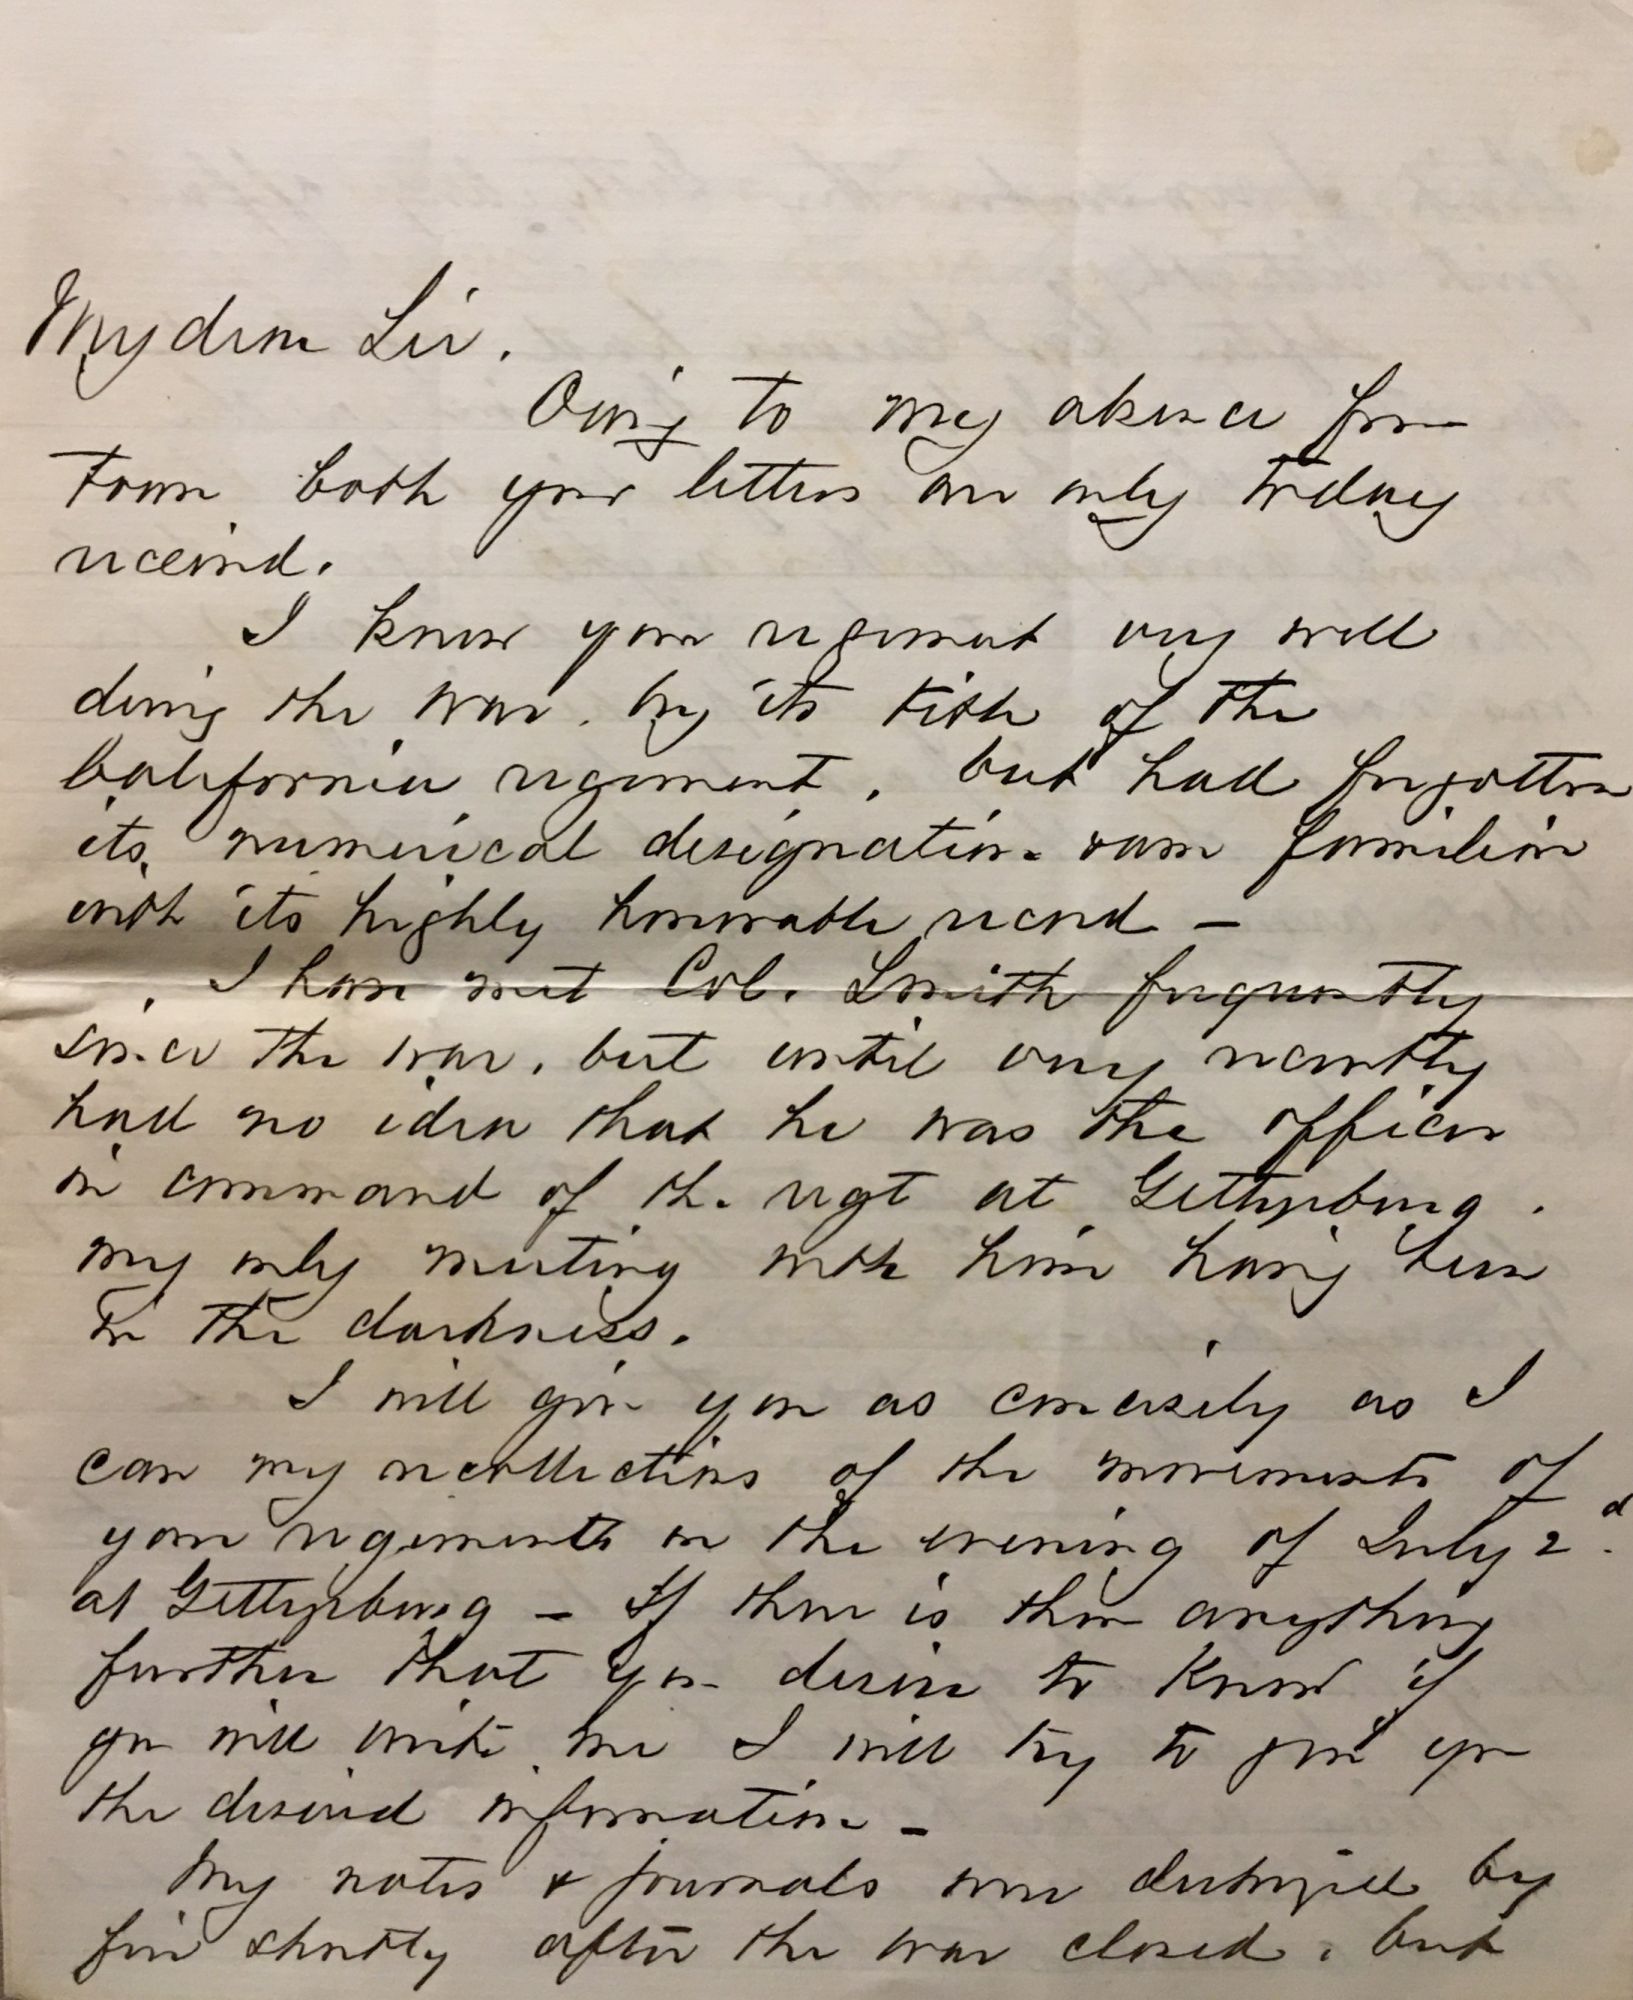 My dear Sir.
Owing to my absence from
town both your letters are only today
received.
I knew your regiment very well
during the war. by its title of the
California regiment, but had forgotten
its numerical designation & am familiar
with its highly honorable record —
I have met Col. Smith frequently
since the war, but until very recently
had no idea that he was the officer
in command of the regt at Gettysburg.
my only meeting with him having been
in the darkness.
I will give you as concisely as I
can my recollections of the movements of
your regiments on the evening of July 2d.
at Gettysburg — If there is then anything
further that you desire to know if
you will write me I will try to give you
the desired information —
My notes & journals were destroyed by
fire shortly after the war closed, but